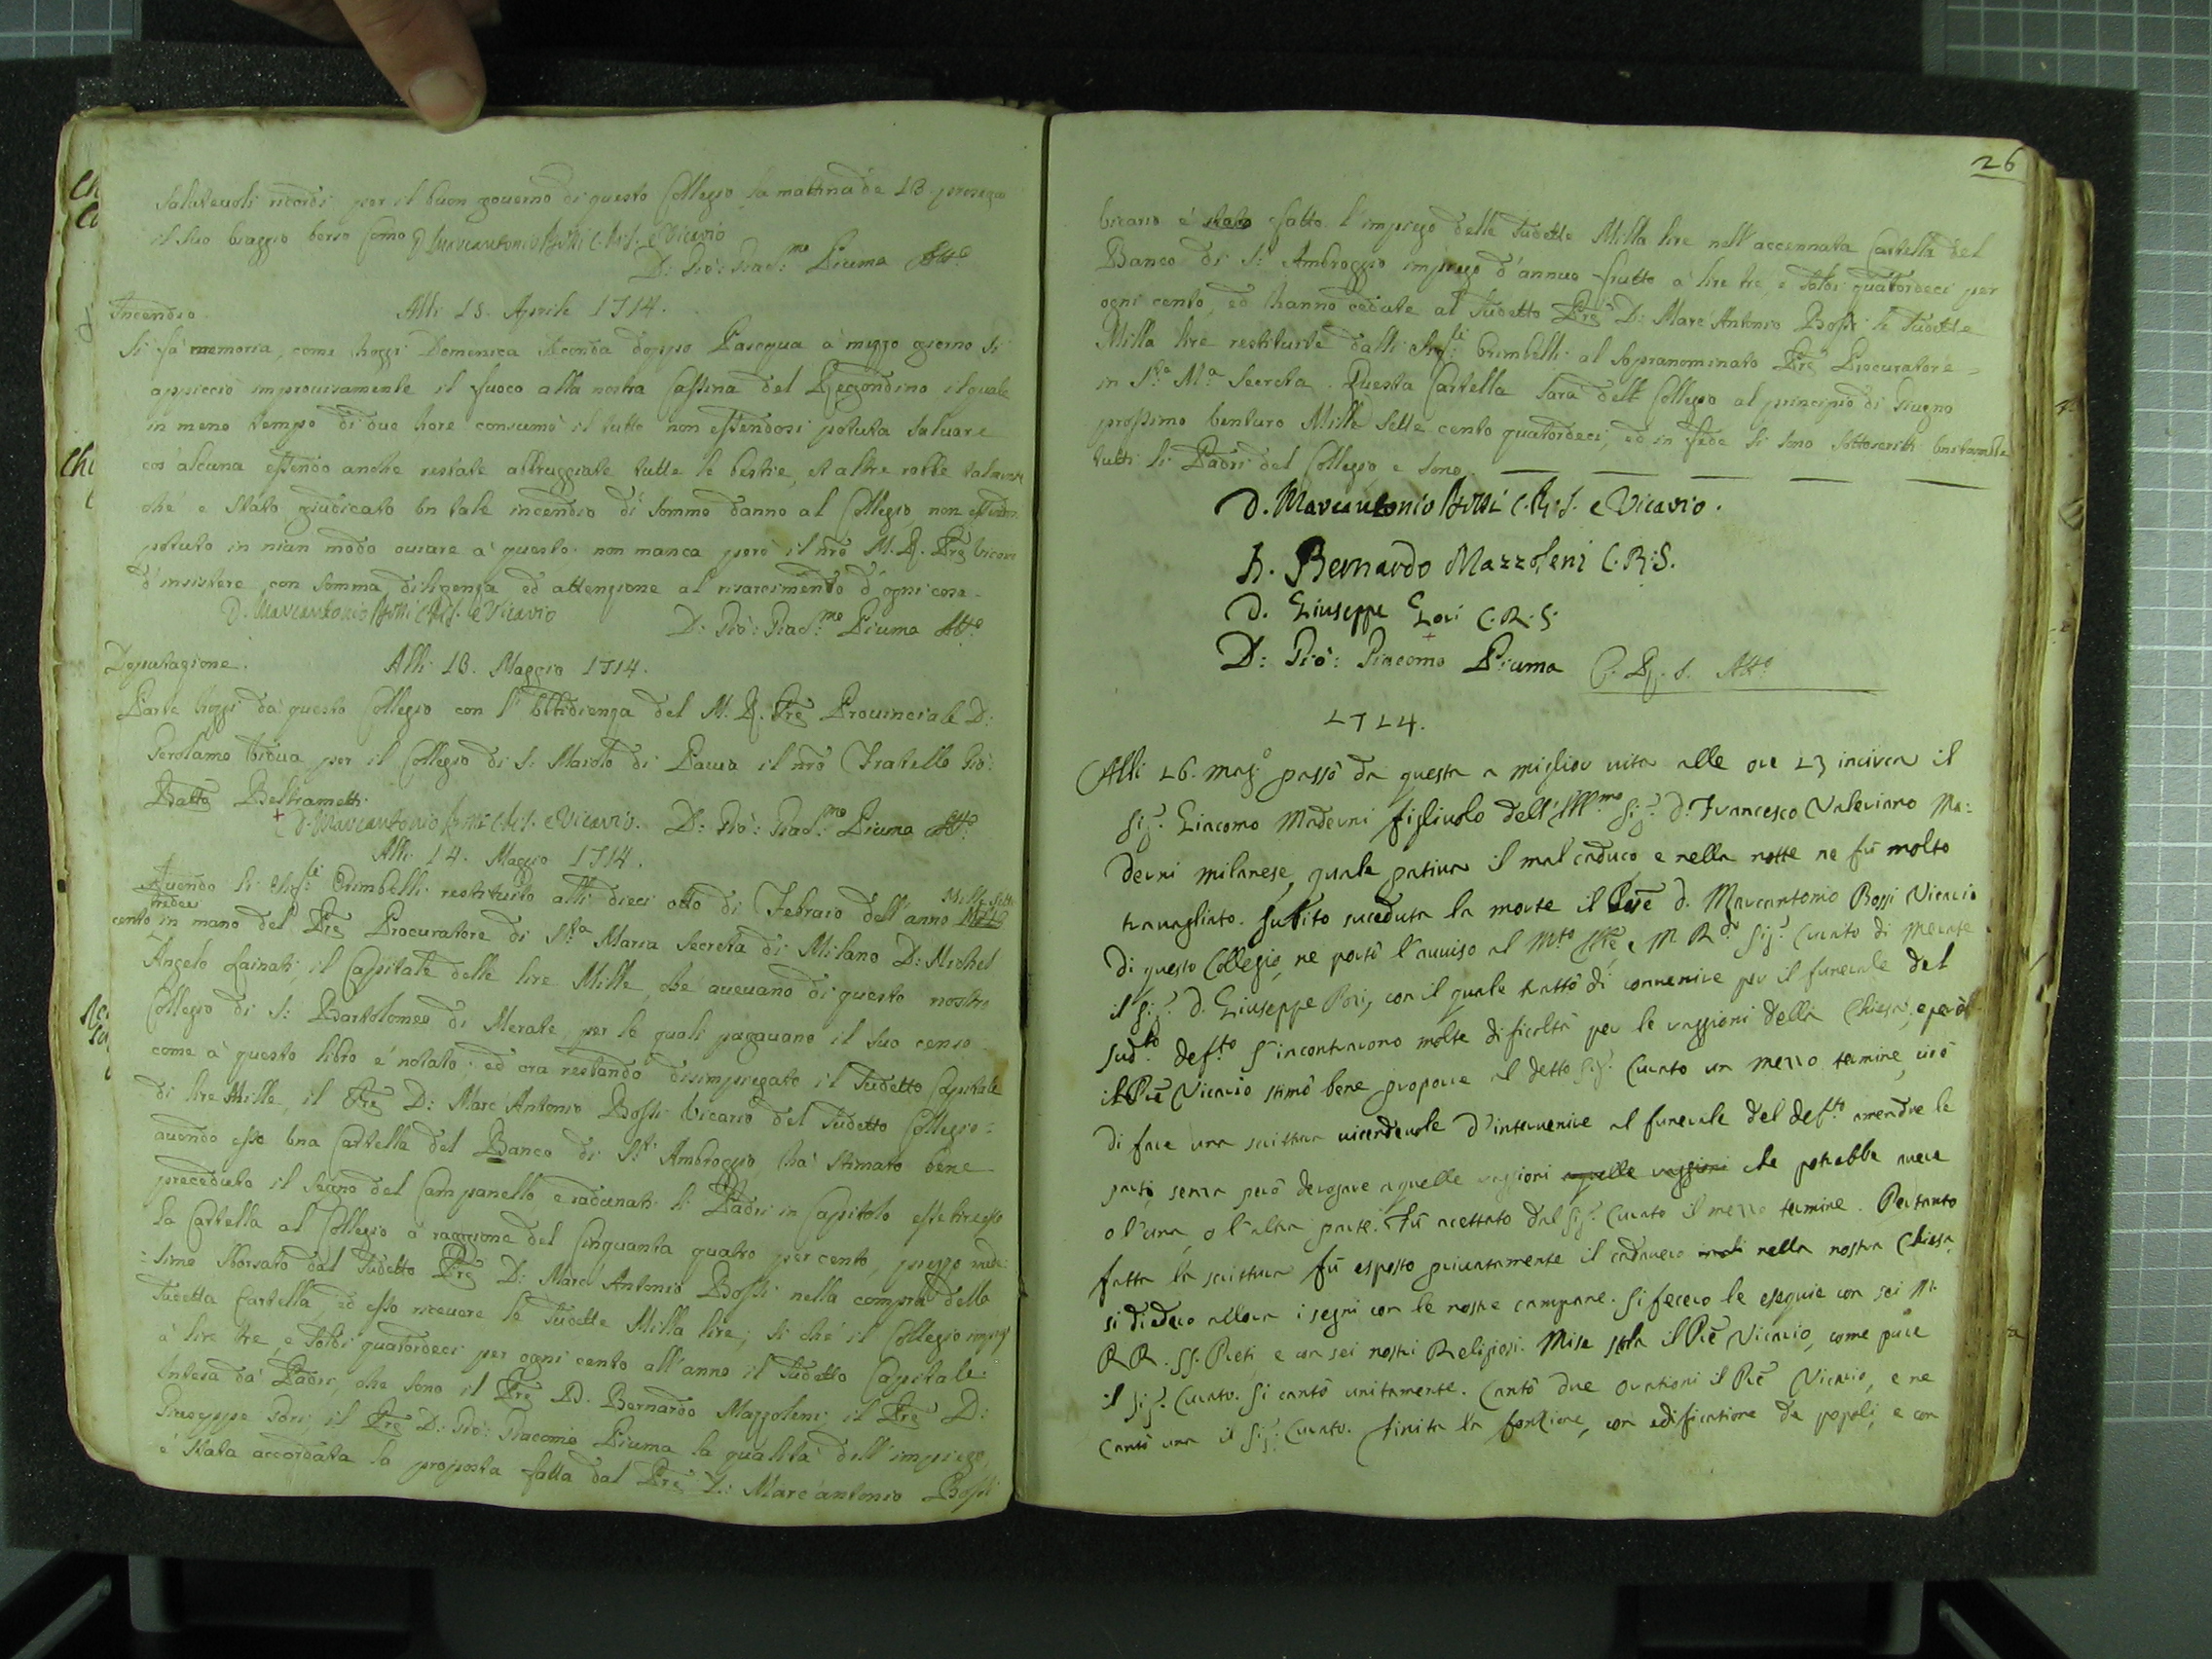 salutevoli ricordi per il buon governo di questo Collegio, la mattina de 13 proseguì
il suo viaggio verso Como D. Marcantonio Bossi C.R.S. e Vicario
D: Gio: Giac:mo Piuma Att.o
Incendio. Alli 15. Aprile 1714.
Si fà memoria, come hoggi Domenica seconda doppo Pasqua à mezzo giorno si
appicciò improvisamente il fuoco alla nostra Cassina del il quale
in meno tempo di due hore consumò il tutto non essendosi potuta salvare
cos'alcuna essendo anche restate abbruggiate tutte le bestie, et altre robbe talmente
che è stato giudicato un tale incendio di sommo danno al Collegio, non essendosi
potuto in niun modo oviare à questo. non manca però il nro M. R. Pre Vicario
d'insistere con somma diligenza ed attenzione al risarcimento d'ogni cosa.
D. Marcantonio Bossi C.R.S. e Vicario D: Gio: Giac:mo Piuma Att.o
Deputazione. Alli 13. Maggio 1714.
Parte hoggi da questo Collegio con l'Ubbidienza del M. R. Pre Provinciale D:
Gerolamo per il Collegio di S: Maiolo di Pavia il nrò Fratello Gio:
Batta Beltrametti.
+ D. Marcantonio Bossi C.R.S. e Vicario. D: Gio: Giac:mo Piuma Att.o
Alli 14. Maggio 1714.
Avendo li Crimbelli restituito alli dieci otto di Febraio dell'anno Mille sette
cento tredeci in mano del Pre Procuratore di S:ta Maria Secreta di Milano D: Michel
Angelo il Capitale delle lire Mille, che avevano di questo nostro
Collegio di S: Bartolomeo di Merate, per le quali pagavano il suo censo
come à questo libro è notato; ed ora restando disimpiegato il sudetto Capitale
di lire Mille, il Pre D: Marc'Antonio Bossi Vicario del sudetto Collegio:
avendo esso una Cartella del Banco di S:t Ambroggio, hà stimato bene
preceduto il segno del Campanello, e radunati li Padri in Capitolo
la Cartella al Collegio à raggione del Cinquanta quatro per cento, prezzo mede:
:simo sborsato dal sudetto Pre D: Marc'Antonio Bossi nella compra della
sudetta Cartella, ed esso ricevere le sudette Milla lire; si che il Collegio
à lire tre, e soldi quatordeci per ogni cento all'anno il sudetto Capitale
Intesa da Padri, che sono il Pre D. Bernardo Mazzoleni; il Pre D:
Giuseppe il Pre D: Gio: Giacomo Piuma la qualità dell'impiego,
è stata accordata la proposta fatta dal Pre D: Marc'antonio Bossi
26
Vicario è stato fatto l'impiego delle sudette Milla lire nell'accennata Cartella del
Banco di S: Ambroggio impiego d'annuo frutto à lire tre, e soldi quatordeci per
ogni cento, ed hanno cedute al sudetto Pre D: Marc'Antonio Bossi le sudette
Milla lire restituite dalli Crimbelli al sopranominato Pre Procuratore
in S:ta M:a Secreta. Questa Cartella sarà del Collegio al principio di Giugno
prossimo venturo Mille sette cento quatordeci, ed in fede si sono sottoscritti unitamente
tutti li Padri del Collegio, e sono.
D. Marcantonio Bossi C.R.S. e Vicario.
D. Bernardo Mazzoleni C.R.S.
D. Giuseppe C.R.S.
D: Gio: Giacomo Piuma C. R. S. Att.o
1714.
Alli 16. Mag.o passò da questa a miglior vita alle ore 23 incirca il
Sig.r Giacomo Maderni figliuolo dell'Ill.mo Sig.r D. Francesco Valeriano Ma:
derni milanese, quale pativa il mal caduco e nella notte ne fù molto
travagliato. Subito succeduta la morte il Pre D. Marcantonio Bossi Vicario
di questo Collegio, ne portò l'avviso al M.to Ill.e e M. R.do Sig.r Curato di Merate
il Sig.r D. Giuseppe con il quale trattò di convenire per il funerale del
sud.to def.to S'incontrarono molte dificoltà per le raggioni della Chiesa; e però
il Pre Vicario stimò bene proporre al detto Sig.r Curato un mezzo termine, ciò è
di fare una scrittura vicendevole d'intervenire al funerale del def.to amendue le
parti, senza però derogare a quelle raggioni a quelle raggioni che potrebbe avere
o l'una, o l'altra parte. Fù accettato dal Sig.r Curato il mezzo termine. Pertanto
fatta la scrittura fù esposto privatamente il cadavero nella nostra Chiesa,
si diedero allora i segni con le nostre campane. Si fecero le esequie con sei M.
R R. SS. Preti, e con sei nostri Religiosi. Mise stola il Pre Vicario, come pure
il Sig.r Curato. Si cantò unitamente. Cantò due orationi il Pre Vicario, e ne
cantò una il Sig.r Curato. Finita la fonzione, con edificatione de popoli, e con